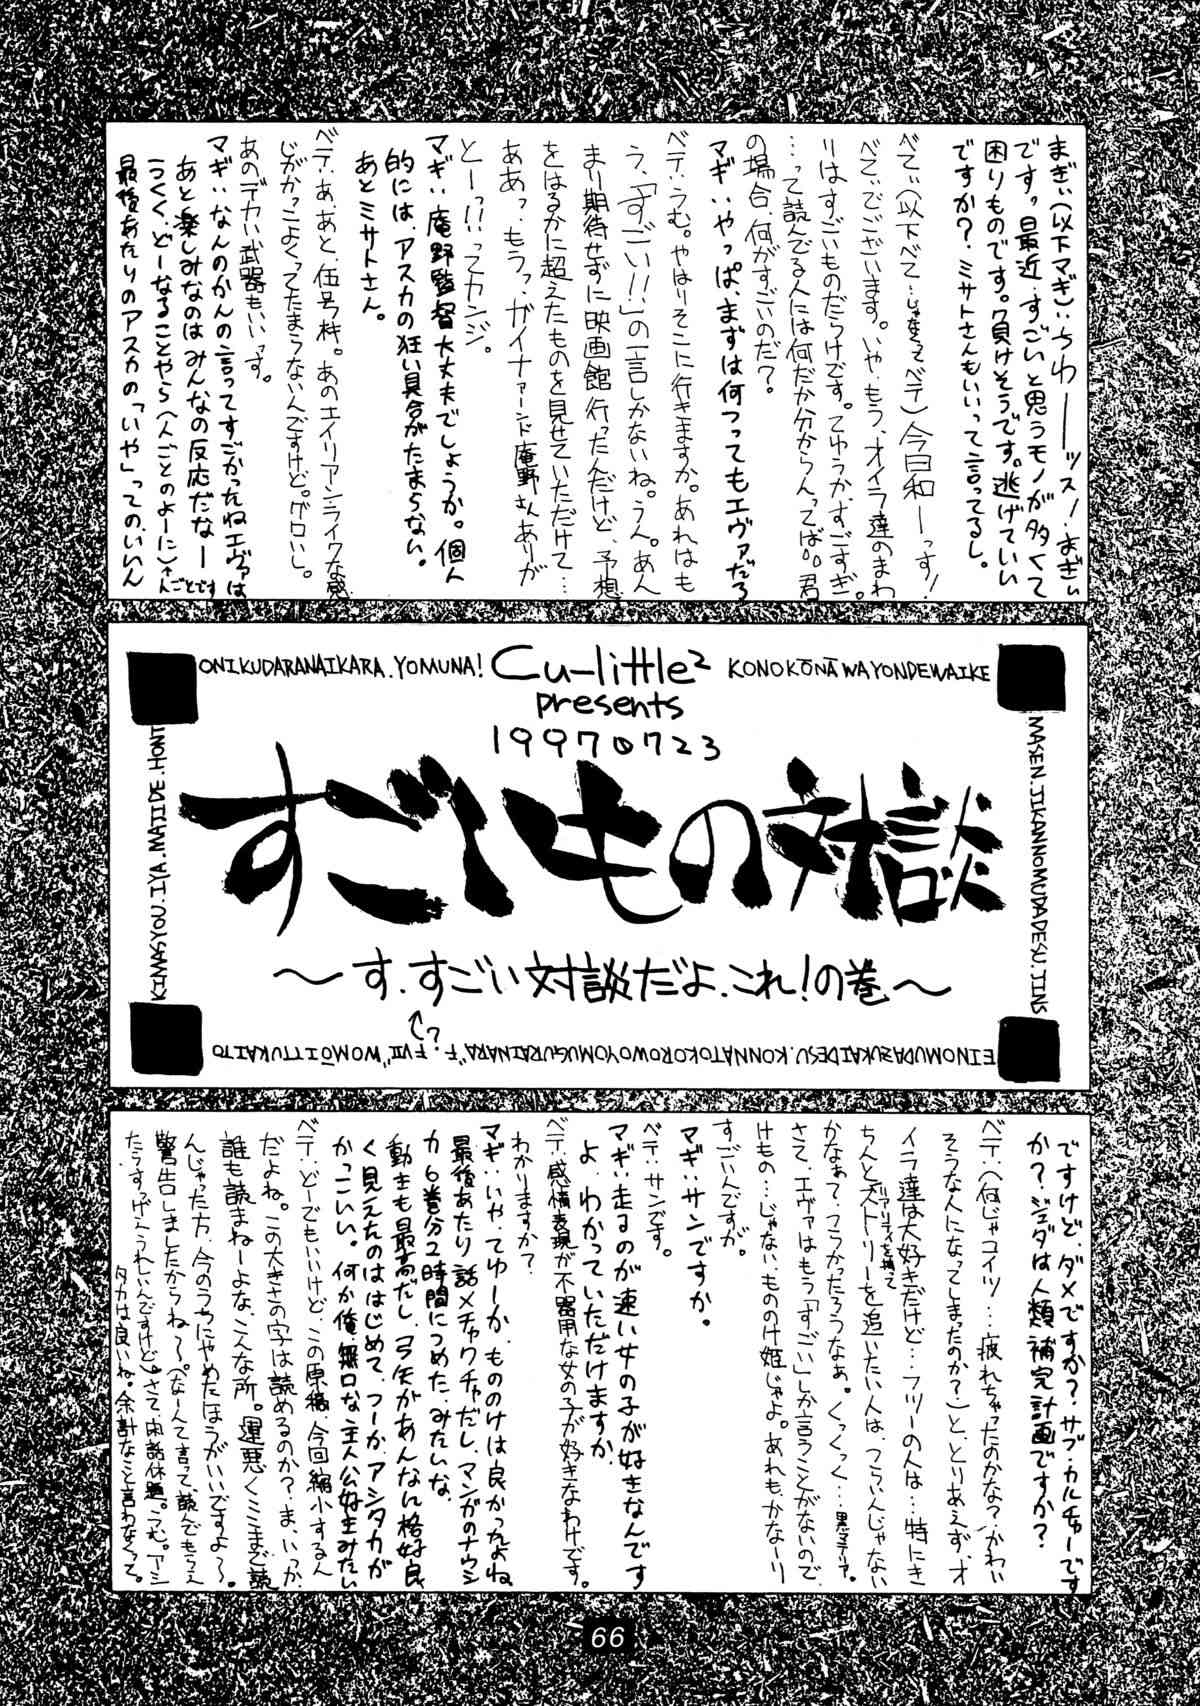 まぎぃ(以下マギ)：ちわーーッス！まぎぃ
です。最近、すごいと思うモノが多くて
困りものです。負けそうです。逃げていい
ですか？ミサトさんもいいって言ってるし。
べてぃ(以下べて…じゃなくってベテ)：今日和ーっす！
べてぃでございます。いや、もう、オイラ達のまわ
りはすごいものだらけです。てゅうか、すごすぎ。
…って読んでる人には何だか分からんってば。君
の場合、何がすごいのだ？
マギ：やっぱ、まずは何つってもエヴァだろ
ベテ：うむ。やはりそこに行きますか。あれはも
う、「すごい！！」の一言しかないね。うん。あん
まり期待せずに映画館行ったんだけど、予想
をはるかに超えたものを見せていただけて…
ああっ、もうっ、ガイナァーンド庵野さんありが
とーっ！！ってカンジ。
マギ：庵野監督大丈夫でしょうか。個人
的には、アスカの狂い具合がたまらない。
あとミサトさん。
ベテ：あ、あと、伍号機。あのエイリアン・ライクな感
じがかっこよくってたまらないんですけど。グロいし。
あのデカい武器もいいっす。
マギ：なんのかんの言ってすごかったねエヴァは
あと楽しみなのはみんなの反応だなー
つくく、どーなることやら(人ごとのよーに)
最後あたりのアスカの「いや」ってのいいん
ONIKUDARANAIKARA.YOMUNA!
Cu-little²
KONOKŌNĀWAYONDEWAIKE
presents
19970723
すごいもの対談
〜す、すごい対談だよ、これ！の巻〜
MASEN.JIKANNOMUDADESU.JINS
EINOMUDAZUKAIDESU.KONNATOKOROWOYOMUGURAINARA"F.FVII"WOMŌITTUKAITO
?
KINASYOU.IYA.MATIDE.HONT
ですけど、ダメですか？サブ・カルチャーです
か？ジュダは人類補完計画ですか？
ベテ：(何じゃコイツ…疲れちゃったのかな？かわい
そうな人になってしまったのか？)と、とりあえず、オ
イラ達は大好きだけど…フツーの人は…特にき
ちんとストーリーを追いたい人は、つらいんじゃない
リアリティを持って
かなぁて。つらかったろうなぁ。くっくっく…
さて、エヴァはもう「すごい」しか言うことがないので、
けもの…じゃない、もののけ姫じゃよ。あれも、かなーり
すごいんですが。
マギ：サンですか。
ベテ：サンです。
マギ：走るのが速い女の子が好きなんです
よ、わかっていただけますか
ベテ：感情表現が不器用な女の子が好きなわけです。
わかりますか？
マギ：いや、てゆーか、もののけは良かったよね
最後あたり話メチャクチャだし、マンガのナウシ
カ6巻分2時間につめた、みたいな。
動きも最高だし、弓矢があんなに格好良
く見えたのははじめて、つーか、アシタカが
かっこいい。何か俺、無口な主人公好きみたい
ベテ：どーでもいいけど、この原稿、今回縮小するん
だよね。この大きさの字は読めるのか？ま、いっか
誰も読まねーよな、こんな所。運悪くここまで読
んじゃった方、今のうちにやめたほうがいいですよ〜。
警告しましたからね〜。なーんて言って読んでもらえ
たらすっげーうれしいんですけど。さて、閑話休題。うむ。アシ
タカは良いね。余計なこと言わなくって。
66